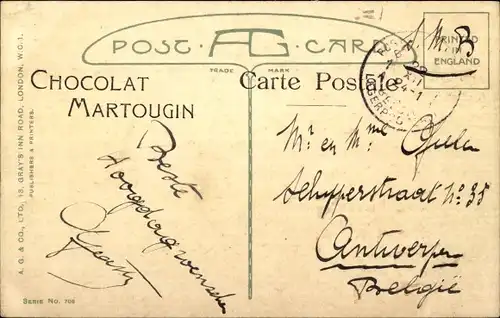 POST AG CARD
TRADE MARK
CHOCOLAT
MARTOUGIN
Carte Postale
PRINTED
IN
ENGLAND
S.M.B
Beste
Hoogdagwenschen
Mr en Mme
Schipperstraat No 35
Antwerpen
België
A. G. & CO., LTD., 18, GRAY'S INN ROAD, LONDON, W.C.1.
PUBLISHERS & PRINTERS.
SERIE NO. 706